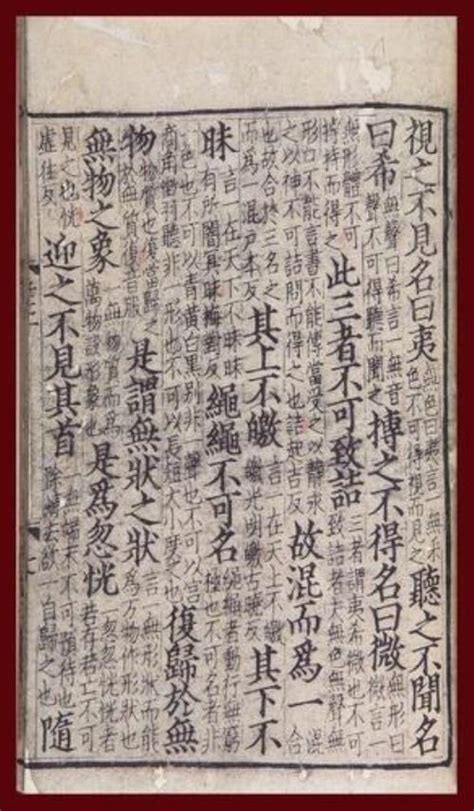 視之不見名曰夷無色曰夷言一無采色不可得視而見之聽之不聞名
曰希無聲曰希言一無音聲不可得聽而聞之搏之不得名曰微無形曰微言一
無形體不可搏持而得之此三者不可致詰三者謂夷希微也不可致詰者夫無色無聲無
形口不能言書不能傳當受之以靜求之以神不可詰問而得之也詰起吉反故混而爲一混合
也故合於三名之而爲一混戶本反其上不皦言一在天上不皦皦光明皦古曉反其下不
昧言一在天下不昧昧有所闇冥昧梅對反繩繩不可名繩繩者動行無窮極也不可名者非
一色也不可以青黃白黑別非一聲也不可以宮商角徵羽聽非一形也不可以長短大小度之也復歸於無
物物質也復當歸之於無質復音服是謂無狀之狀言一無形狀而能爲万物作形狀也
無物之象一無物質而爲萬物設形象也是爲忽恍一忽忽恍恍者若存若亡不可
見之也恍虛往反迎之不見其首一無端末不可預待也除情去欲一自歸之也隨